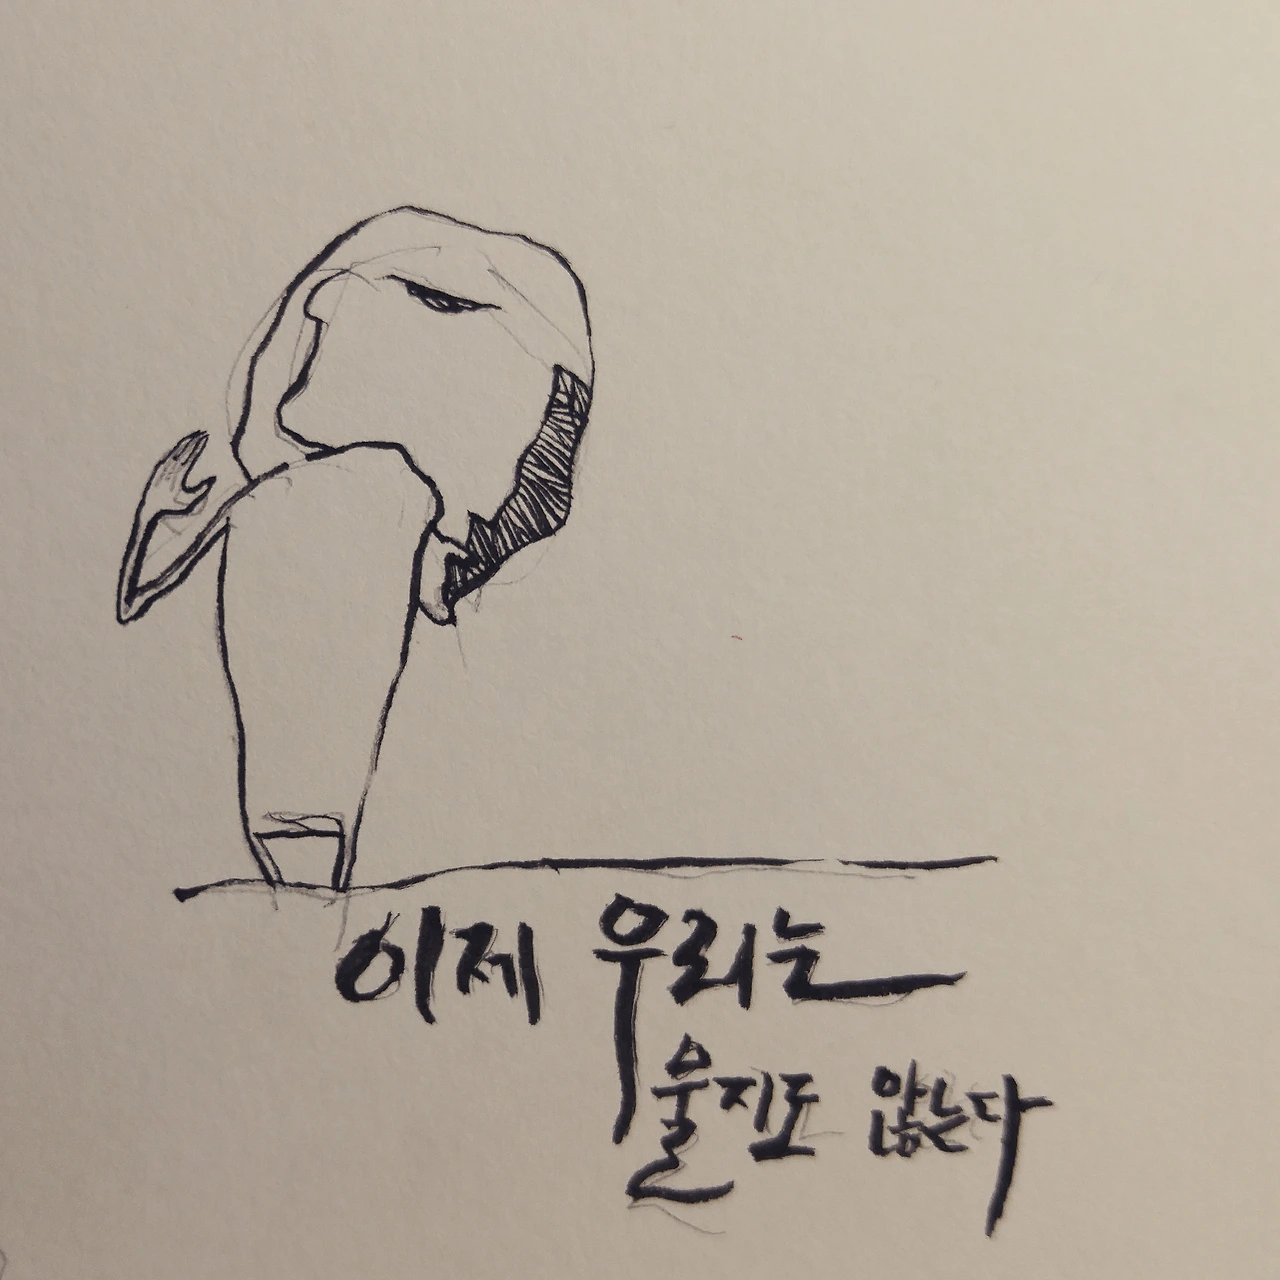 이제 우리는
울지도 않는다